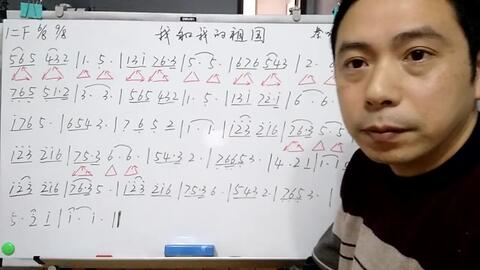 1=F 6/8 9/8 我和我的祖国
565 432 | 1· 5· | 13i 76·3 | 5· 5· | 676 543 | 2·
765 51·2 | 3· 3· | 565 432 | 1· 5· | 13i 72·i | 6· 6·
i765· | 6543· | 7 6 5 2 | 1· 1· | i23 2i6 | 76·3 5· 5·
i23 2i6 | 75·3 6· 6· | 54·3 2· | 7665 3· | 4·21 | 1· 
i23 2i6 | 76·35· | i23 2i6 | 75·3 6· | 543 2· | 765 3· |
5· 2 i | i· i· ||